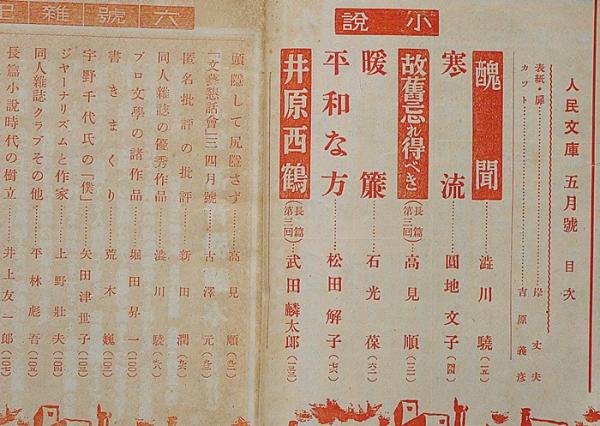 人民文庫 五月號 目次
表紙・扉……岸丈夫
カット……吉原義彦
小說
醜聞……澁川驍（一五）
寒流……圓地文子（四四）
故舊忘れ得べき（長篇第三回）……高見順（三）
暖簾……石光葆（六二）
平和な方……松田解子（七八）
井原西鶴（長篇第三回）……武田麟太郎（一三三）
六號雜記
頭隱して尻隱さず……高見順（九二）
「文藝懇話會」三四月號……古澤元（九四）
匿名批評の批評……新田潤（九六）
同人雜誌の優秀作品……澁川驍（九八）
プロ文學の諸作品……堀田昇一（一〇〇）
書きまくり……荒木巍（一〇二）
宇野千代氏の「僕」……矢田津世子（一〇三）
ジヤーナリズムと作家……上野壯夫（一〇四）
同人雜誌クラブその他……平林彪吾（一〇五）
長篇小說時代の樹立……井上友一郎（一〇七）